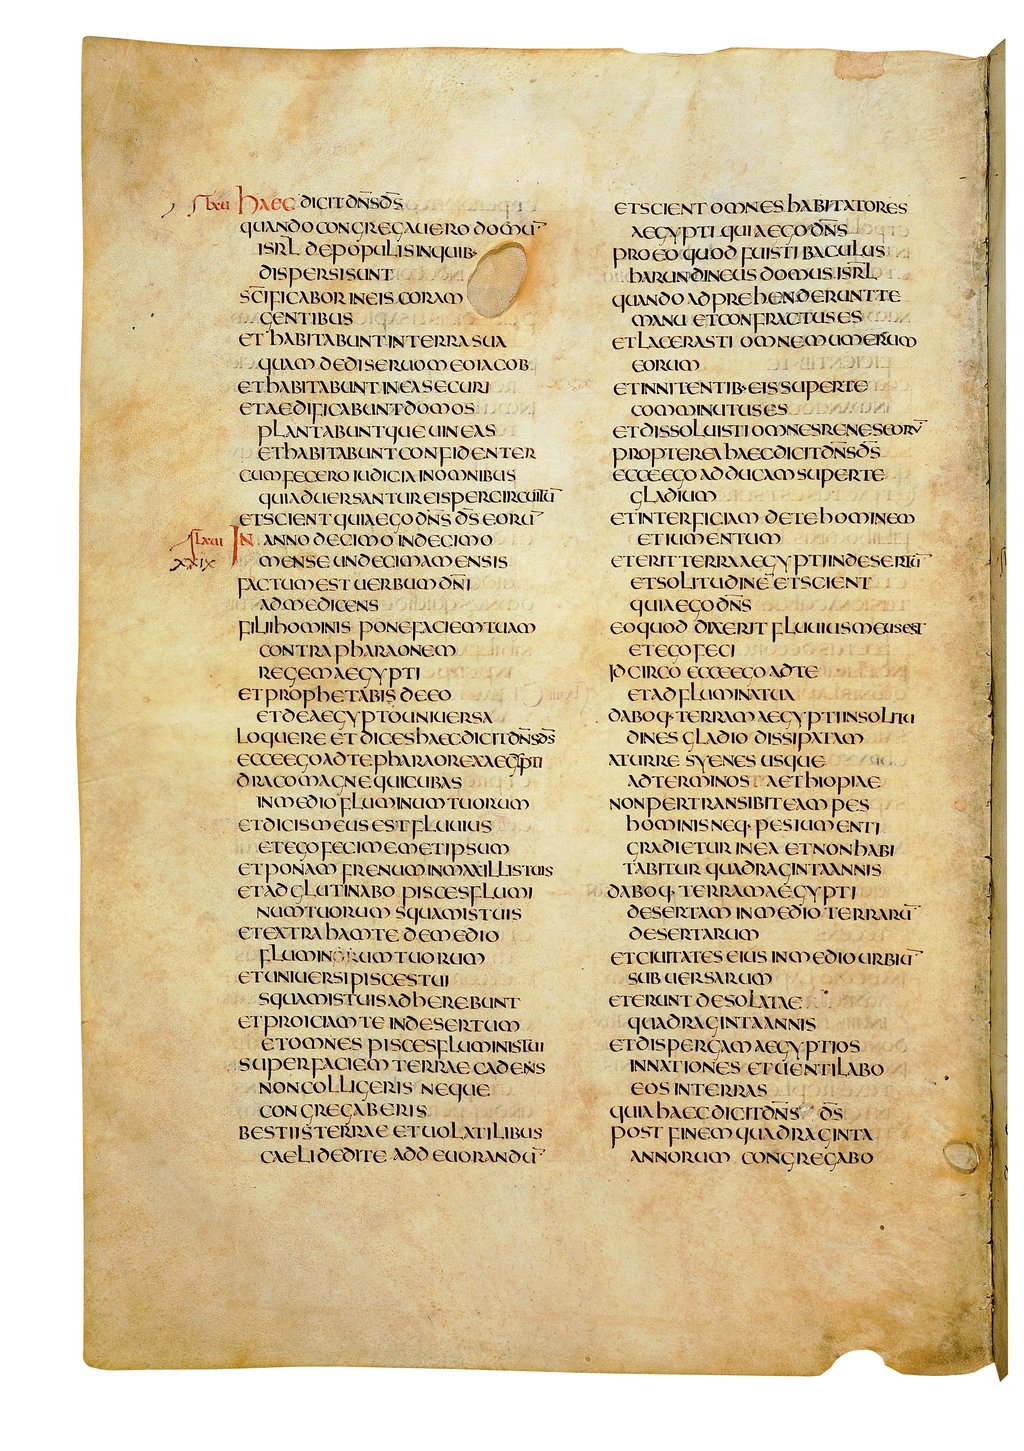 lxii HAEC DICIT DN̄S DS̄
QUANDO CONGREGAUERO DOMŪ
ISRL̄ DE POPULIS IN QUIB·
DISPERSI SUNT
SC̄IFICABOR IN EIS CORAM
GENTIBUS
ET HABITABUNT IN TERRA SUA
QUAM DEDI SERUO MEO IACOB
ET HABITABUNT IN EA SECURI
ET AEDIFICABUNT DOMOS
PLANTABUNTQUE UINEAS
ET HABITABUNT CONFIDENTER
CUM FECERO IUDICIA IN OMNIBUS
QUI ADUERSANTUR EIS PER CIRCUITŪ
ET SCIENT QUIA EGO DN̄S DS̄ EORŪ
lxiii IN ANNO DECIMO IN DECIMO
XXIX MENSE UNDECIMA MENSIS
FACTUM EST UERBUM DN̄I
AD ME DICENS
FILI HOMINIS PONE FACIEM TUAM
CONTRA PHARAONEM
REGEM AEGYPTI
ET PROPHETABIS DE EO
ET DE AEGYPTO UNIUERSA
LOQUERE ET DICES HAEC DICIT DN̄S DS̄
ECCE EGO AD TE PHARAO REX AEGYPTI
DRACO MAGNE QUI CUBAS
IN MEDIO FLUMINUM TUORUM
ET DICIS MEUS EST FLUUIUS
ET EGO FECI MEMET IPSUM
ET PONAM FRENUM IN MAXILLIS TUIS
ET ADGLUTINABO PISCES FLUMI
NUM TUORUM SQUAMIS TUIS
ET EXTRAHAM TE DE MEDIO
FLUMINORUM TUORUM
ET UNIUERSI PISCES TUI
SQUAMIS TUIS ADHEREBUNT
ET PROICIAM TE IN DESERTUM
ET OMNES PISCES FLUMINIS TUI
SUPER FACIEM TERRAE CADENS
NON COLLIGERIS NEQUE
CONGREGABERIS
BESTIIS TERRAE ET UOLATILIBUS
CAELI DEDI TE AD DEUORANDŪ
ET SCIENT OMNES HABITATORES
AEGYPTI QUIA EGO DN̄S
PRO EO QUOD FUISTI BACULUS
HARUNDINEUS DOMUS ISRL̄
QUANDO ADPREHENDERUNT TE
MANU ET CONFRACTUS ES
ET LACERASTI OMNEM UMERUM
EORUM
ET INNITENTIB· EIS SUPER TE
COMMINUTUS ES
ET DISSOLUISTI OMNES RENES EORV̄
PROPTEREA HAEC DICIT DN̄S DS̄
ECCE EGO ADDUCAM SUPER TE
GLADIUM
ET INTERFICIAM DE TE HOMINEM
ET IUMENTUM
ET ERIT TERRA AEGYPTI IN DESERTŪ
ET SOLITUDINĒ ET SCIENT
QUIA EGO DN̄S
EO QUOD DIXERIT FLUUIUS MEUS EST
ET EGO FECI
IDCIRCO ECCE EGO AD TE
ET AD FLUMINA TUA
DABOQ· TERRAM AEGYPTI IN SOLITU
DINES GLADIO DISSIPATAM
A TURRE SYENES USQUE
AD TERMINOS AETHIOPIAE
NON PERTRANSIBIT EAM PES
HOMINIS NEQ· PES IUMENTI
GRADIETUR IN EA ET NON HABI
TABITUR QUADRAGINTA ANNIS
DABOQ· TERRAM AEGYPTI
DESERTAM IN MEDIO TERRARŪ
DESERTARUM
ET CIUITATES EIUS IN MEDIO URBIŪ
SUBUERSARUM
ET ERUNT DESOLATAE
QUADRAGINTA ANNIS
ET DISPERGAM AEGYPTIOS
IN NATIONES ET UENTILABO
EOS IN TERRAS
QUIA HAEC DICIT DN̄S DS̄
POST FINEM QUADRAGINTA
ANNORUM CONGREGABO